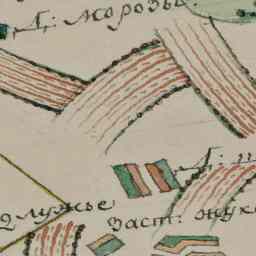 Д: морозы.
Д:
лужье
Заст: жук